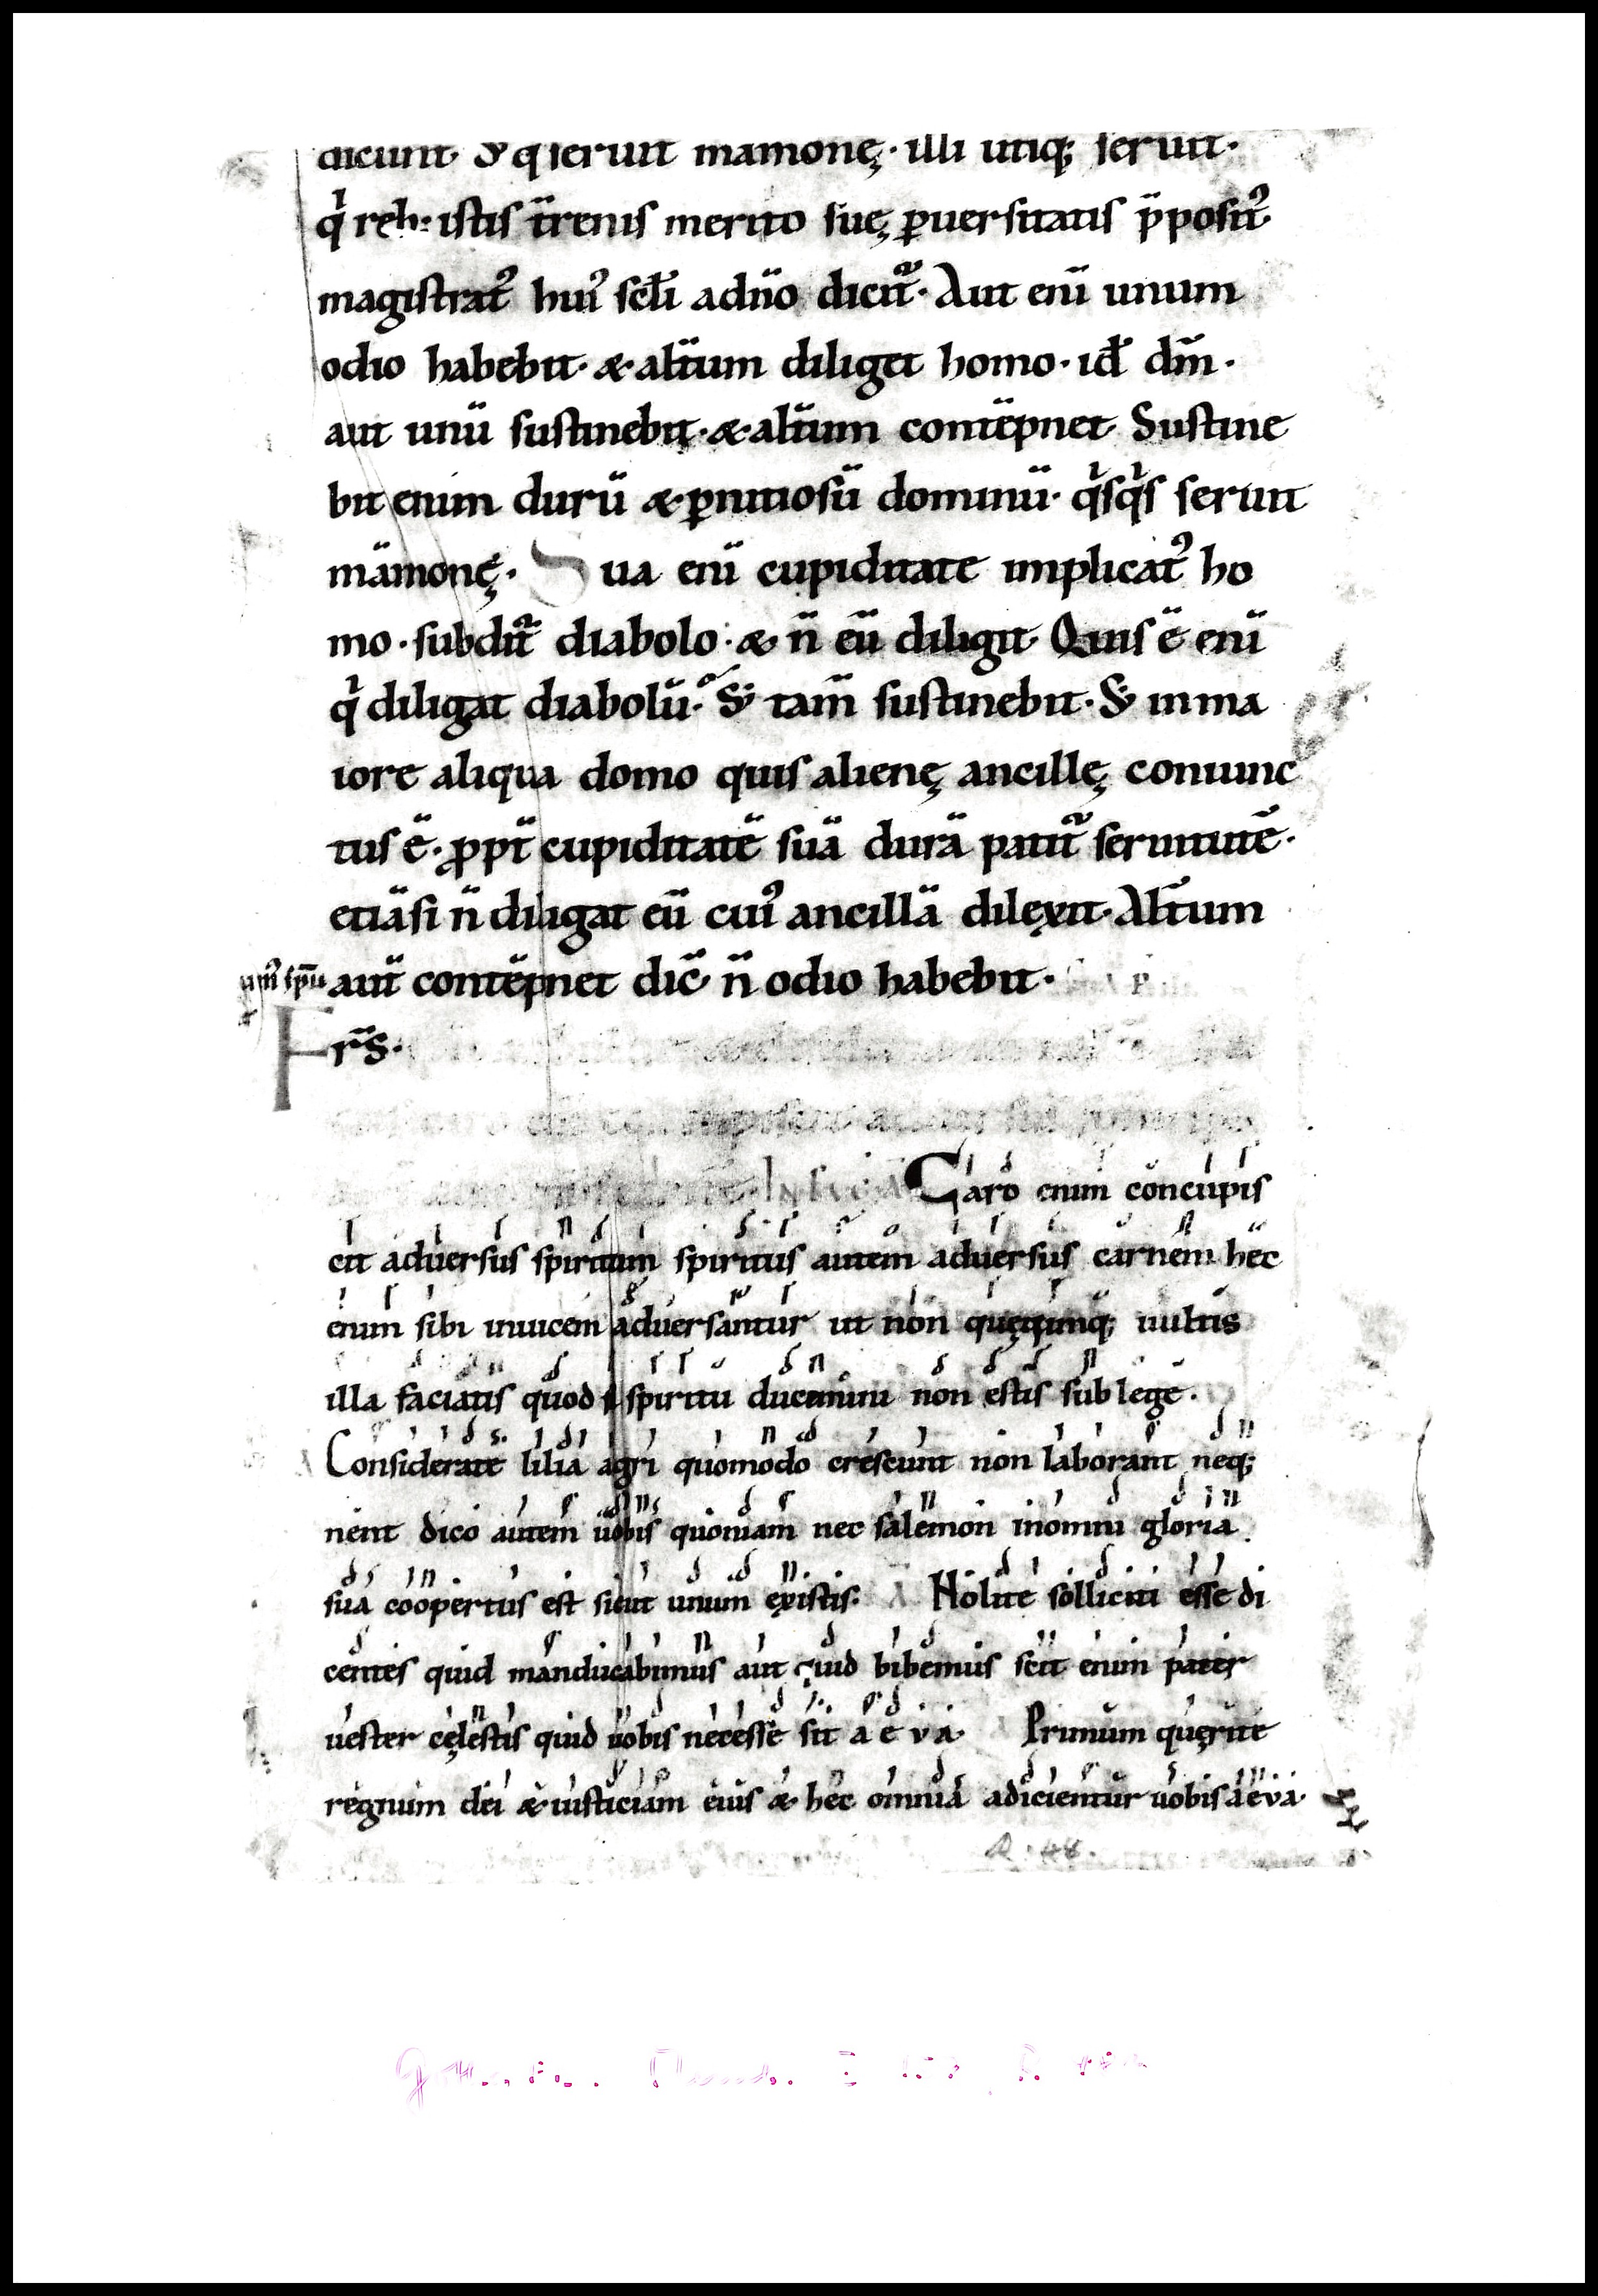 dicunt· S; q̇ seruit mamonę· illi utiq; seruit·
q̇ reb; istis t̄renis merito suę ꝑuersitatis p̄posit᷒
magistrat᷒ hui᷒ sc̄li adn̄o dicit᷑· Aut enī unum
odio habebit· & alt̄um diliget homo· id̄ dm̄·
aut unū sustinebit· & alt̄um contēpnet Sustine
bit enim durū & ꝑnitiosū dominū· q̇sq̇s seruit
māmonę· Sua enī cupiditate implicat᷒ ho
mo· subdit᷑ diabolo· & n̄ eū diligit· Quis ē enī
q̇ diligat diabolū· S; tam̄ sustinebit· S; in ma
iore aliqua domo quis alienę ancillę coniunc
tus ē· ꝓpt̄ cupiditatē suā durā patit᷑ seruitutē·
etiāsi n̄ diligat eū cui᷒ ancillā dilexit· Alt̄um
aut̄ contēpnet dic̄ n̄ odio habebit·
Fr̄s·
Caro enim concupis
cit aduersus spiritum spiritus autem aduersus carnem hęc
enim sibi inuicem aduersantur ut non quęcumq; uultis
illa faciatis quod si spiritu ducimini non estis sub lege·
Considerate lilia agri quomodo crescunt non laborant neq;
nent dico autem uobis quoniam nec salemon in omni gloria
sua coopertus est sicut unum ex istis· Nolite solliciti esse di
centes quid manducabimus aut quid bibemus scit enim pater
uester cęlestis quid uobis necesse sit a e v a· Primum quęrite
regnum dei & iusticiam eius & hęc omnia adicientur uobis a e v a·